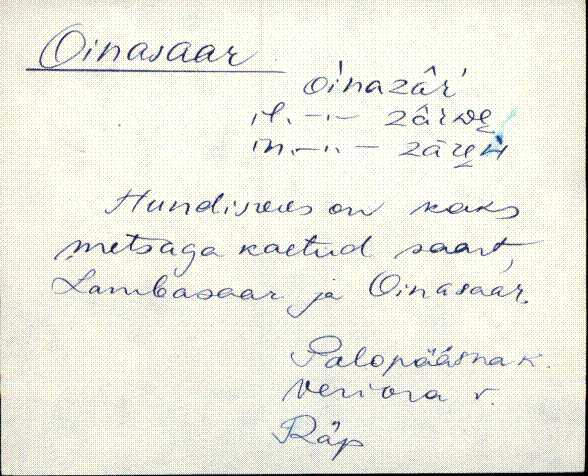 Oinasaar
óinazâŕ
il. -"- zârwe̮
in. -"- zâre̮н
Hundisoos on kaks
metsaga kaetud saart,
Lambasaar ja Oinasaar.
Palopääsna k.
Veriora v.
Räp